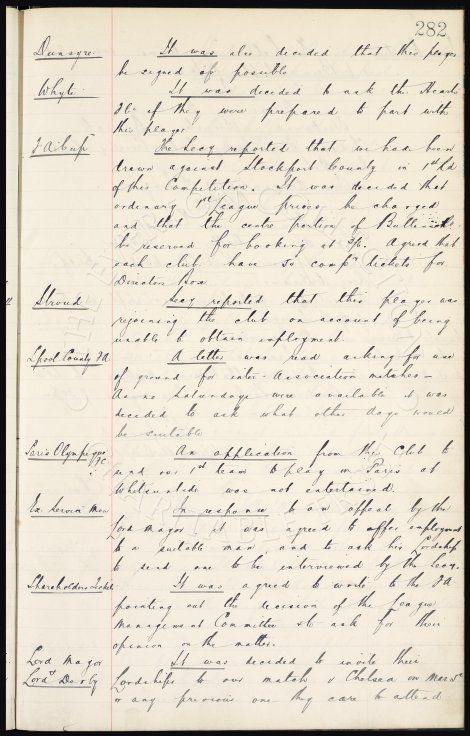 282
Dunsyre. It was also decided that this player
be signed if possible
Whyte. It was decided to ask the Hearts
FC if they were prepared to part with
this player
FA Cup The Secy reported that we had been
drawn against Stockport County in 1st Rd
of this Competition. It was decided that
ordinary 1st league prices be charged
and that the centre portion of
be reserved for booking at 3/-. Agreed that
each club have 50 comp tickets for
Directors Box
Stroud Secy reported that this player was
rejoining the club on account of being
unable to obtain employment
Lpool County FA A letter was read asking for use
of ground for inter-association matches -
As no Saturdays were available it was
decided to ask what other days would
be suitable
Paris Olympique FC An application from this Club to
send our 1st team to play in Paris at
Whitsuntide was not entertained.
Ex Service Men In response to an appeal by the
Lord Mayor it was agreed to offer employment
to a suitable man, and to ask his Lordship
to send one to be interviewed by the Secy.
Shareholders Ticket It was agreed to write to the FA
pointing out the decision of the League
Management Committee & to ask for their
opinion on the matter.
Lord Mayor It was decided to invite their
Lord Derby Lordships to our match v Chelsea on Mar
or any previous one they care to attend